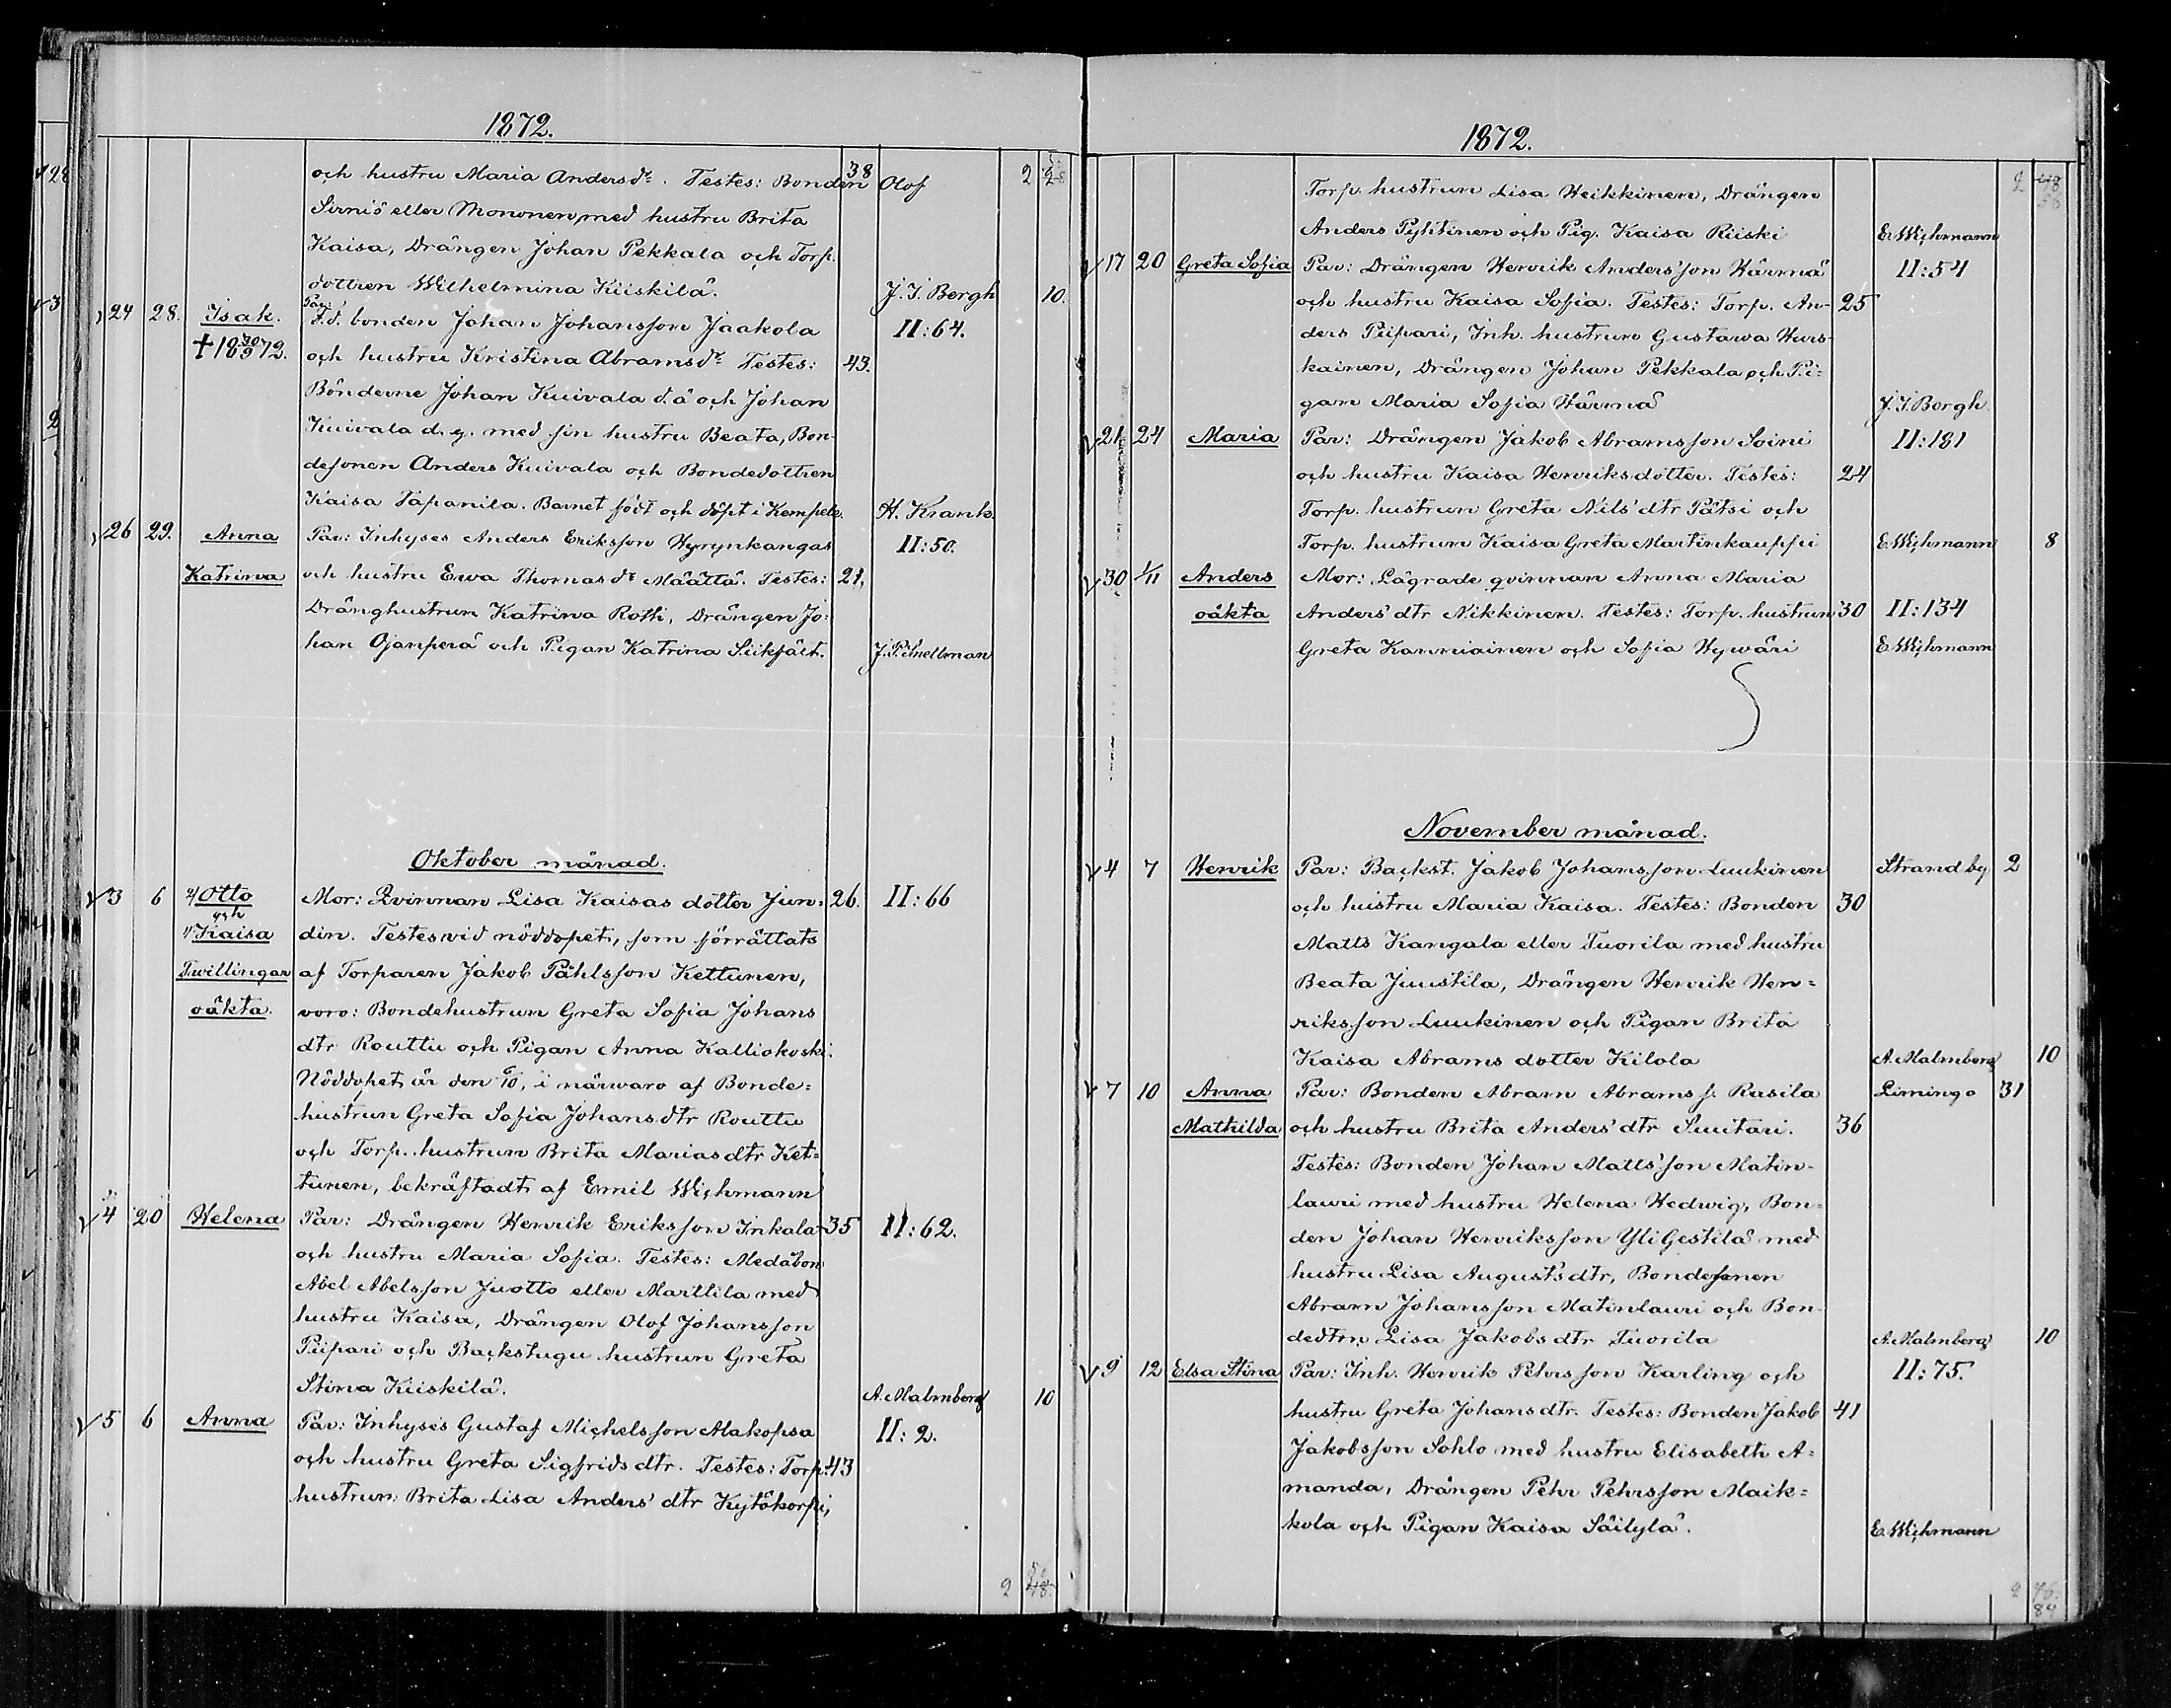 1872.
och hustru Maria Andersdr. Testes: Bonden 38 Olof 2
Sirniö eller Mononen, med hustru Brita
Kaisa, Drängen Johan Pekkala och Torp.
dottren Wilhelmina Kiiskilä. J. I. Bergh 10.
24 28. Isak. Par: F.d. bonden Johan Johansson Jaakola II:64.
†18 30/9 72. och hustru Kristina Abramsdr Testes: 43.
Bönderne Johan Kuivala d.ä och Johan
Kuivala d.y. med sin hustru Beata, Bon-
desonen Anders Kuivala och Bondedottren
Kaisa Tapanila. Barnet födt och döpt i Kempele. H. Krank.
26 29. Anna Par: Inhyses Anders Eriksson Hyrynkangas II:50.
Katrina och hustru Ewa Thomasdr Määttä. Testes: 21,
Dränghustrun Katrina Roth, Drängen Jo-
han Ojanperä och Pigan Katrina Siikjält. J. P. Snellman
Oktober månad.
V 3 6 2) Otto Mor: Qvinnan Lisa Kaisas dotter Jun- 26. II:66
och
1) Kaisa din. Testes vid nöddopet, som förrättats
Twillingar af Torparen Jakob Påhlsson Kettunen,
oäkta. voro: Bondehustrun Greta Sofia Johans
dtr Routtu och Pigan Anna Kalliokoski.
Nöddopet är den 6/10, i närwaro af Bonde-
hustrun Greta Sofia Johansdtr Routtu
och Torp. hustrun Brita Mariasdtr Ket-
tunen, bekräftadt af Emil Wichmann
V 4 20 Helena Par: Drängen Henrik Eriksson Inkala 35 II:62.
och hustru Maria Sofia. Testes: Medåbon
Abel Abelsson Juotto eller Marttila med
hustru Kaisa, Drängen Olof Johansson
Piipari och Backstugu hustrun Greta
Stina Kiiskilä. A. Malmberg 10
V 5 6 Anna Par: Inhyses Gustaf Michelsson Alakopsa II: 2.
och hustru Greta Sigfridsdtr. Testes: Torp. 43
hustrun Brita Lisa Anders' dtr Kytökorpi,
2 48.
1872.
Torp. hustrun Lisa Heikkinen, Drängen 2 48
Anders Pyhtinen och Pig. Kaisa Riiski E. Wichmann
V 17 20 Greta Sofia Par: Drängen Henrik Anders'son Härmä II:54
och hustru Kaisa Sofia. Testes: Torp. An- 25
ders Piipari, Inh. hustrun Gustawa Hurs-
kainen, Drängen Johan Pekkala och Pi-
gan Maria Sofia Härmä J. I. Bergh
V 21 24 Maria Par: Drängen Jakob Abramsson Soini II:181
och hustru Kaisa Henriksdotter. Testes: 24
Torp. hustrun Greta Nils'dtr Pätsi och
Torp. hustrun Kaisa Greta Martinkauppi E. Wichmann 8
V 30 1/11 Anders Mor: Lägrade qvinnan Anna Maria
oäkta Anders'dtr Nikkinen. Testes: Torp. hustrun 30 II:134
Greta Kanniainen och Sofia Hywäri E. Wichmann
November månad.
V 4 7 Henrik Par: Backst. Jakob Johansson Luukinen Strand by 2
och hustru Maria Kaisa. Testes: Bonden 30
Matts Kangala eller Tuorila med hustru
Beata Juustila, Drängen Henrik Hen-
riksson Luukinen och Pigan Brita
Kaisa Abrams dotter Kilola A. Malmberg 10
V 7 10 Anna Par: Bonden Abram Abramss. Rasila Limingo 31
Mathilda och hustru Brita Anders'dtr Suutari. 36
Testes: Bonden Johan Matts'son Matin-
lauri med hustru Helena Hedwig, Bon-
den Johan Henriksson YliGestilä med
hustru Lisa August'sdtr, Bondesonen
Abram Johansson Matinlauri och Bon-
dedtrn Lisa Jakobsdtr Tuorila A. Malmberg 10
V 9 12 Elsa Stina Par: Inh. Henrik Pehrsson Karling och II:75.
hustru Greta Johansdtr. Testes: Bonden Jakob 41
Jakobsson Sohlo med hustru Elisabeth A-
manda, Drängen Pehr Pehrsson Maik-
kola och Pigan Kaisa Säilylä. E. Wichmann
2 76.
84